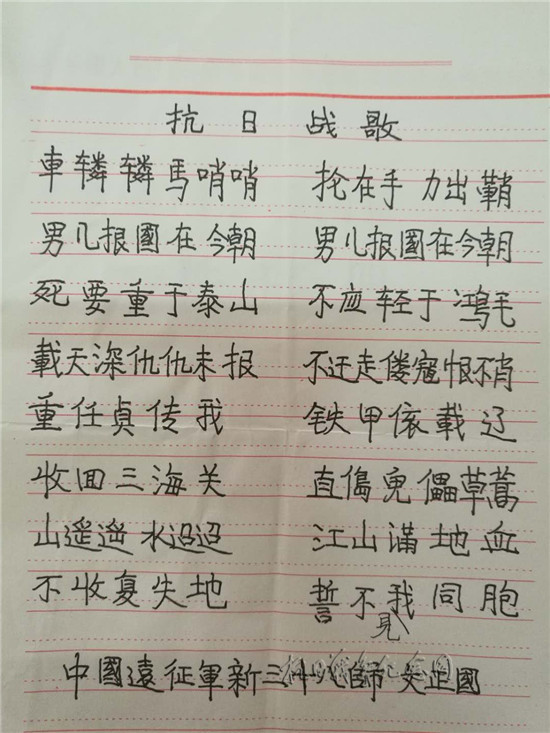 抗日战歌
車辚辚馬哨哨 抢在手力出鞘
男儿报國在今朝 男儿报國在今朝
死要重于泰山 不应轻于鴻毛
載天深仇仇未报 不迁走倭寇恨不消
重任貞传我 铁甲依載辽
收回三海关 直傷鬼儡草蒿
山遥遥水迢迢 江山满地血
不收复失地 誓不見我同胞
中國遠征軍新三十八師 文正國